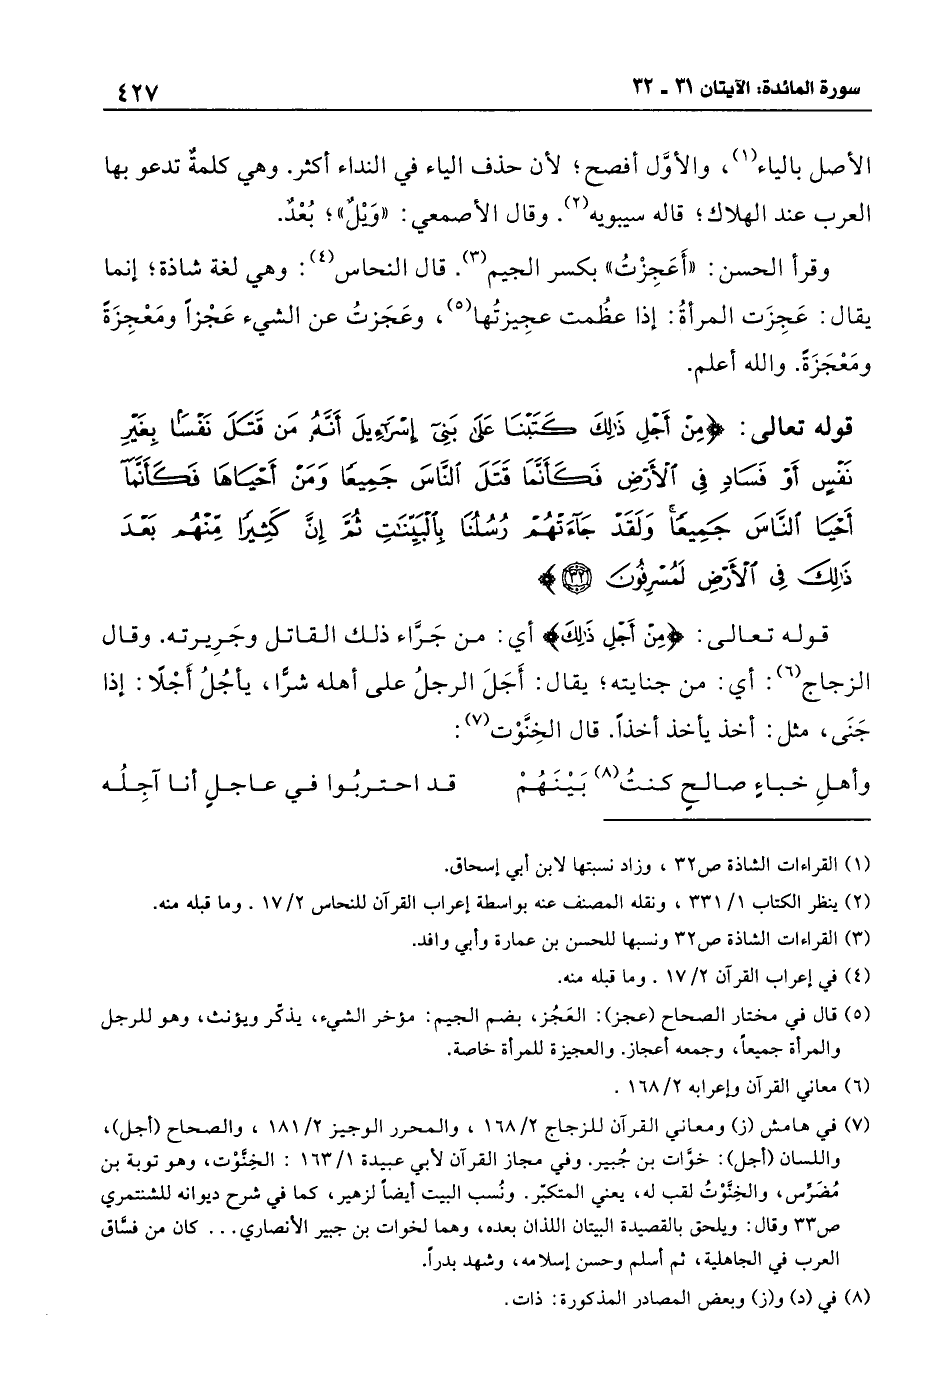 سورة المائدة: الآيتان ٣١ ـ ٣٢
٤٢٧
الأصل بالياء(١)، والأوَّل أفصح؛ لأن حذف الياء في النداء أكثر. وهي كلمةٌ تدعو بها
العرب عند الهلاك؛ قاله سيبويه(٢). وقال الأصمعي: «وَيْلٌ»؛ بُعْدٌ.
وقرأ الحسن: «أَعَجِزْتُ» بكسر الجيم(٣). قال النحاس(٤): وهي لغة شاذة؛ إنما
يقال: عَجِزَت المرأةُ: إذا عظُمت عجيزتُها(٥)، وعَجَزتُ عن الشيء عَجْزاً ومَعْجِزَةً
ومَعْجَزَةً. والله أعلم.
قوله تعالى: ﴿مِنْ أَجْلِ ذَٰلِكَ كَتَبْنَا عَلَىٰ بَنِىٓ إِسْرَٰٓءِيلَ أَنَّهُۥ مَن قَتَلَ نَفْسًۢا بِغَيْرِ
نَفْسٍ أَوْ فَسَادٍ فِى ٱلْأَرْضِ فَكَأَنَّمَا قَتَلَ ٱلنَّاسَ جَمِيعًا وَمَنْ أَحْيَاهَا فَكَأَنَّمَآ
أَحْيَا ٱلنَّاسَ جَمِيعًا ۚ وَلَقَدْ جَآءَتْهُمْ رُسُلُنَا بِٱلْبَيِّنَٰتِ ثُمَّ إِنَّ كَثِيرًا مِّنْهُم بَعْدَ
ذَٰلِكَ فِى ٱلْأَرْضِ لَمُسْرِفُونَ ٣٢﴾
قوله تعالى: ﴿مِنْ أَجْلِ ذَٰلِكَ﴾ أي: من جَرَّاء ذلك القاتل وجَرِيرته. وقال
الزجاج(٦): أي: من جنايته؛ يقال: أَجَلَ الرجلُ على أهله شرًّا، يأجُلُ أَجْلًا: إذا
جَنَى، مثل: أخذ يأخذ أخذاً. قال الخِنَّوْت(٧):
وأهلِ خباءٍ صالحٍ كنتُ(٨) بَيْنَهُمْ قد احتربُوا في عاجلٍ أنا آجِلُه
(١) القراءات الشاذة ص٣٢ ، وزاد نسبتها لابن أبي إسحاق.
(٢) ينظر الكتاب ١/ ٣٣١ ، ونقله المصنف عنه بواسطة إعراب القرآن للنحاس ٢/ ١٧ . وما قبله منه.
(٣) القراءات الشاذة ص٣٢ ونسبها للحسن بن عمارة وأبي واقد.
(٤) في إعراب القرآن ٢/ ١٧ . وما قبله منه.
(٥) قال في مختار الصحاح (عجز): العَجُز، بضم الجيم: مؤخر الشيء، يذكّر ويؤنث، وهو للرجل
والمرأة جميعاً، وجمعه أعجاز. والعجيزة للمرأة خاصة.
(٦) معاني القرآن وإعرابه ٢/ ١٦٨ .
(٧) في هامش (ز) ومعاني القرآن للزجاج ٢/ ١٦٨ ، والمحرر الوجيز ٢/ ١٨١ ، والصحاح (أجل)،
واللسان (أجل): خوَّات بن جُبير. وفي مجاز القرآن لأبي عبيدة ١/ ١٦٣ : الخِنَّوْت، وهو توبة بن
مُضَرِّس، والخِنَّوْتُ لقب له، يعني المتكبّر. ونُسب البيت أيضاً لزهير، كما في شرح ديوانه للشنتمري
ص٣٣ وقال: ويلحق بالقصيدة البيتان اللذان بعده، وهما لخوات بن جبير الأنصاري... كان من فسَّاق
العرب في الجاهلية، ثم أسلم وحسن إسلامه، وشهد بدراً.
(٨) في (د) و(ز) وبعض المصادر المذكورة: ذات.